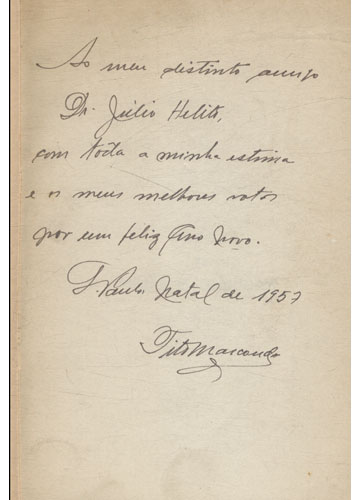 Ao meu distinto amigo
Dr. Júlio Helito,
com toda a minha estima
e os meus melhores votos
por um feliz Ano Novo.
S. Paulo, Natal de 1957